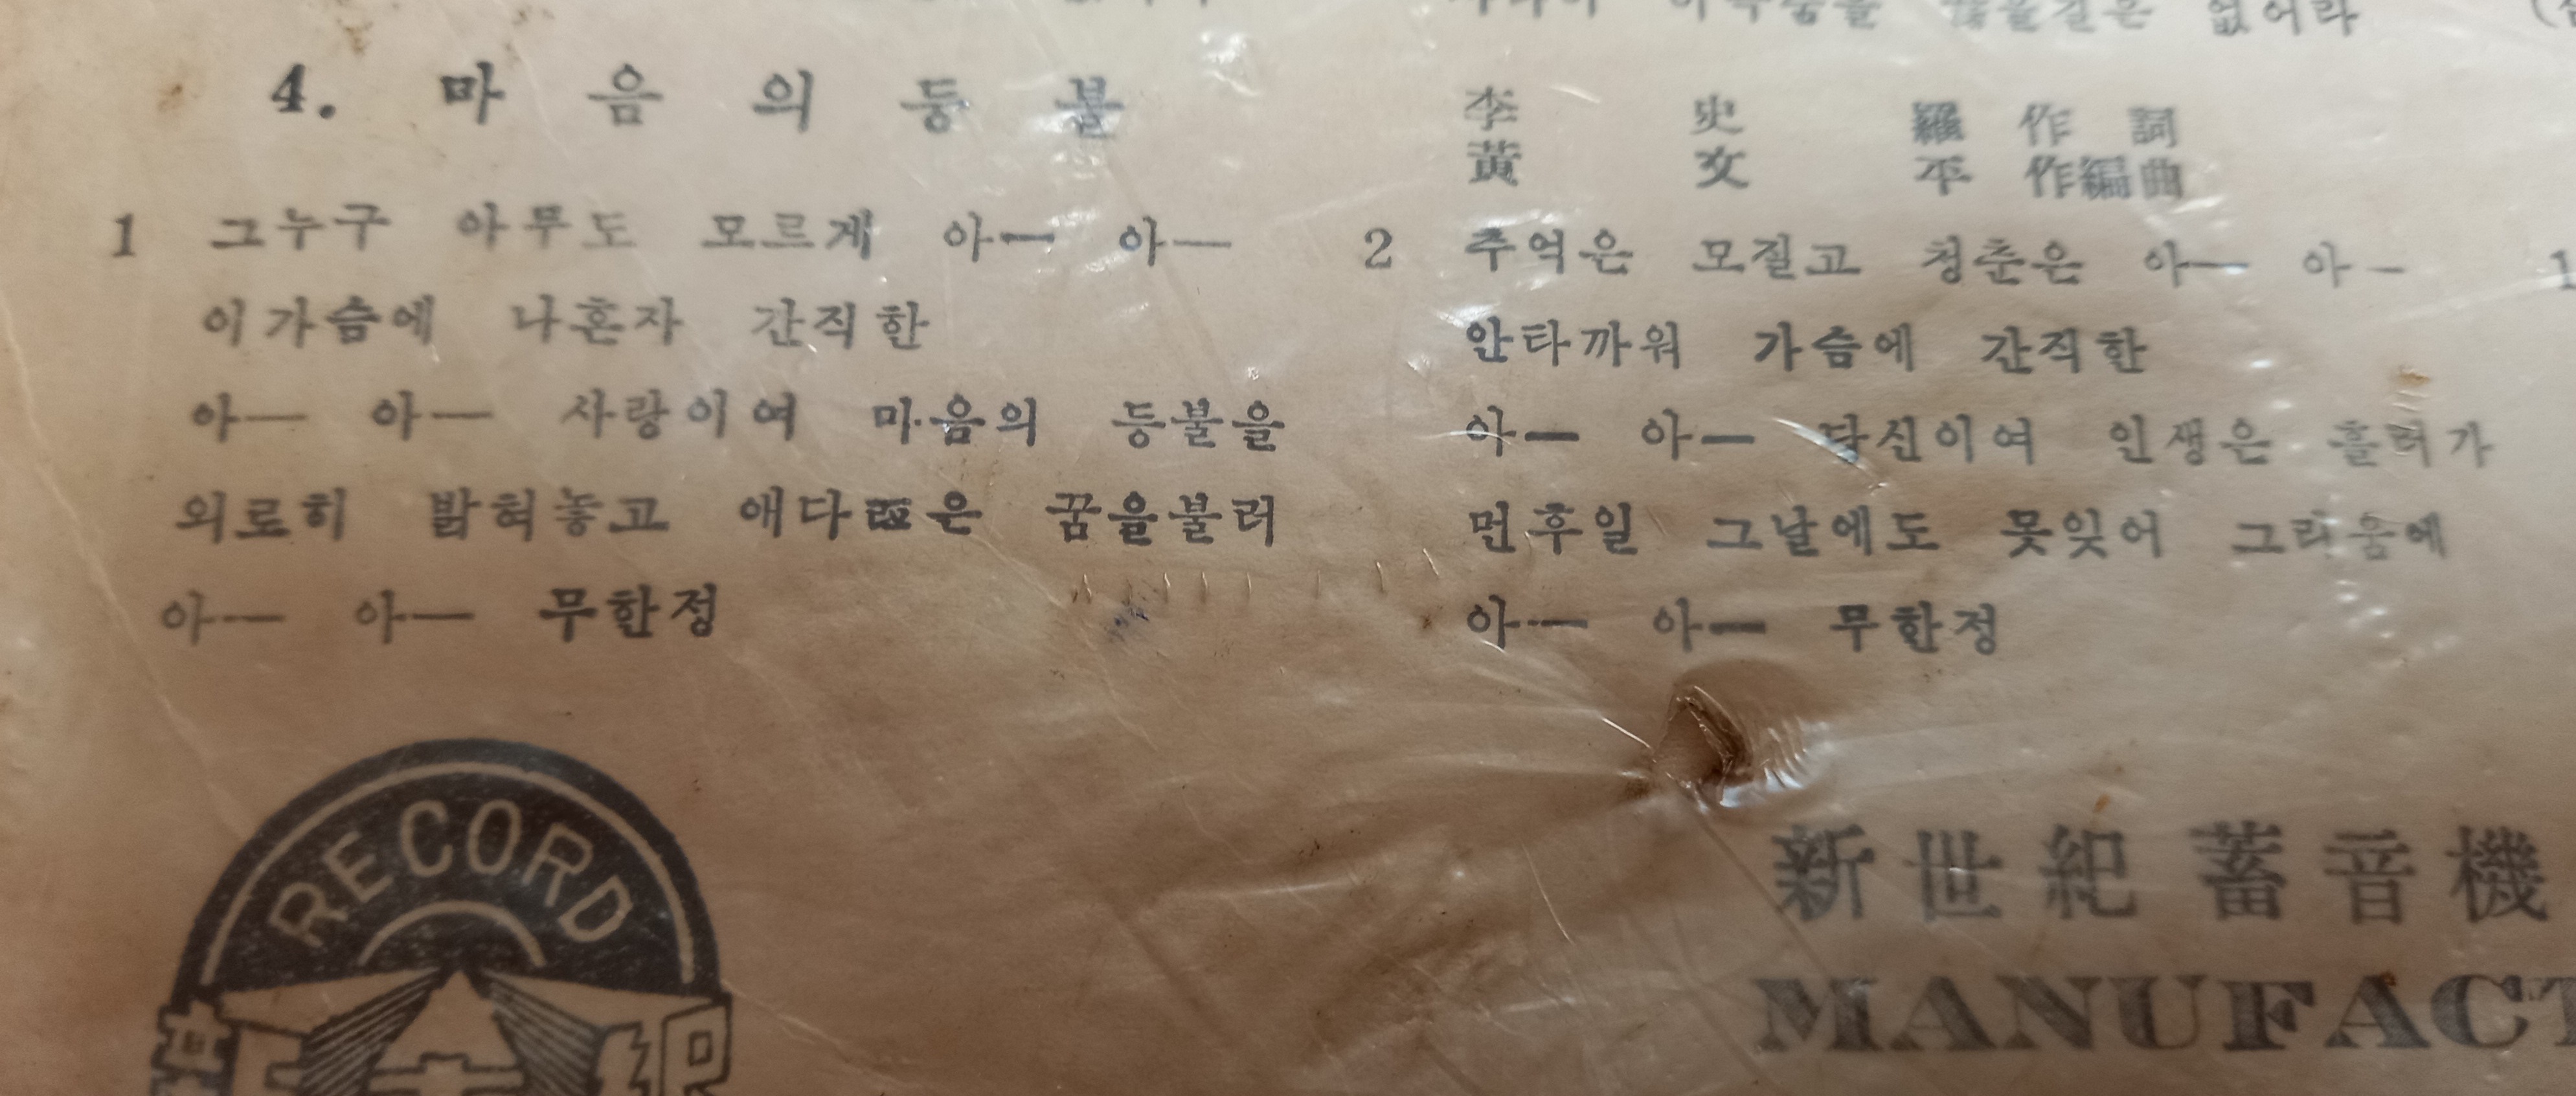 없어라
4. 마음의 등불
李史羅 作詞
黃文平 作編曲
1 그누구 아무도 모르게 아— 아—
이가슴에 나혼자 간직한
아— 아— 사랑이여 마음의 등불을
외로히 밝혀놓고 꿈을불러
아— 아— 무한정
2 추억은 모질고 청춘은 아— 아—
안타까워 가슴에 간직한
아— 아— 당신이여 인생은 흘러가
먼후일 그날에도 못잊어 그리움에
아— 아— 무한정
RECORD
新世紀蓄音機
MANUFACT